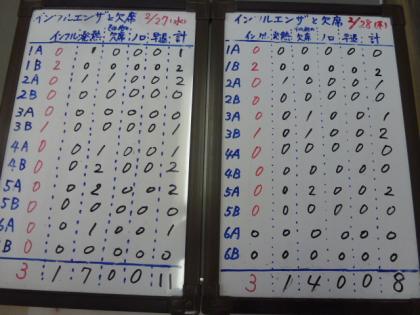 インフルエンザと欠席 2/27(水)
インフル 発熱 その他の欠席 ノロ 早退 計
1A 0 1 0 0 0 1
1B 2 0 0 0 0 2
2A 0 0 1 0 0 1
2B 0 0 0 0 0 0
3A 0 0 0 0 0 0
3B 1 0 0 0 0 1
4A 0 0 1 0 0 1
4B 0 0 2 0 0 2
5A 0 0 2 0 0 2
5B 0 0 0 0 0 0
6A 0 0 1 0 0 1
6B 0 0 0 0 0 0
3 1 7 0 0 11
インフルエンザと欠席 2/28(木)
インフル 発熱 その他の欠席 ノロ 早退 計
1A 0 0 0 0 0 0
1B 2 0 0 0 0 2
2A 0 1 0 0 0 1
2B 0 0 0 0 0 0
3A 0 0 1 0 0 1
3B 1 0 1 0 0 2
4A 0 0 0 0 0 0
4B 0 0 0 0 0 0
5A 0 0 2 0 0 2
5B 0 0 0 0 0 0
6A 0 0 0 0 0 0
6B 0 0 0 0 0 0
3 1 4 0 0 8